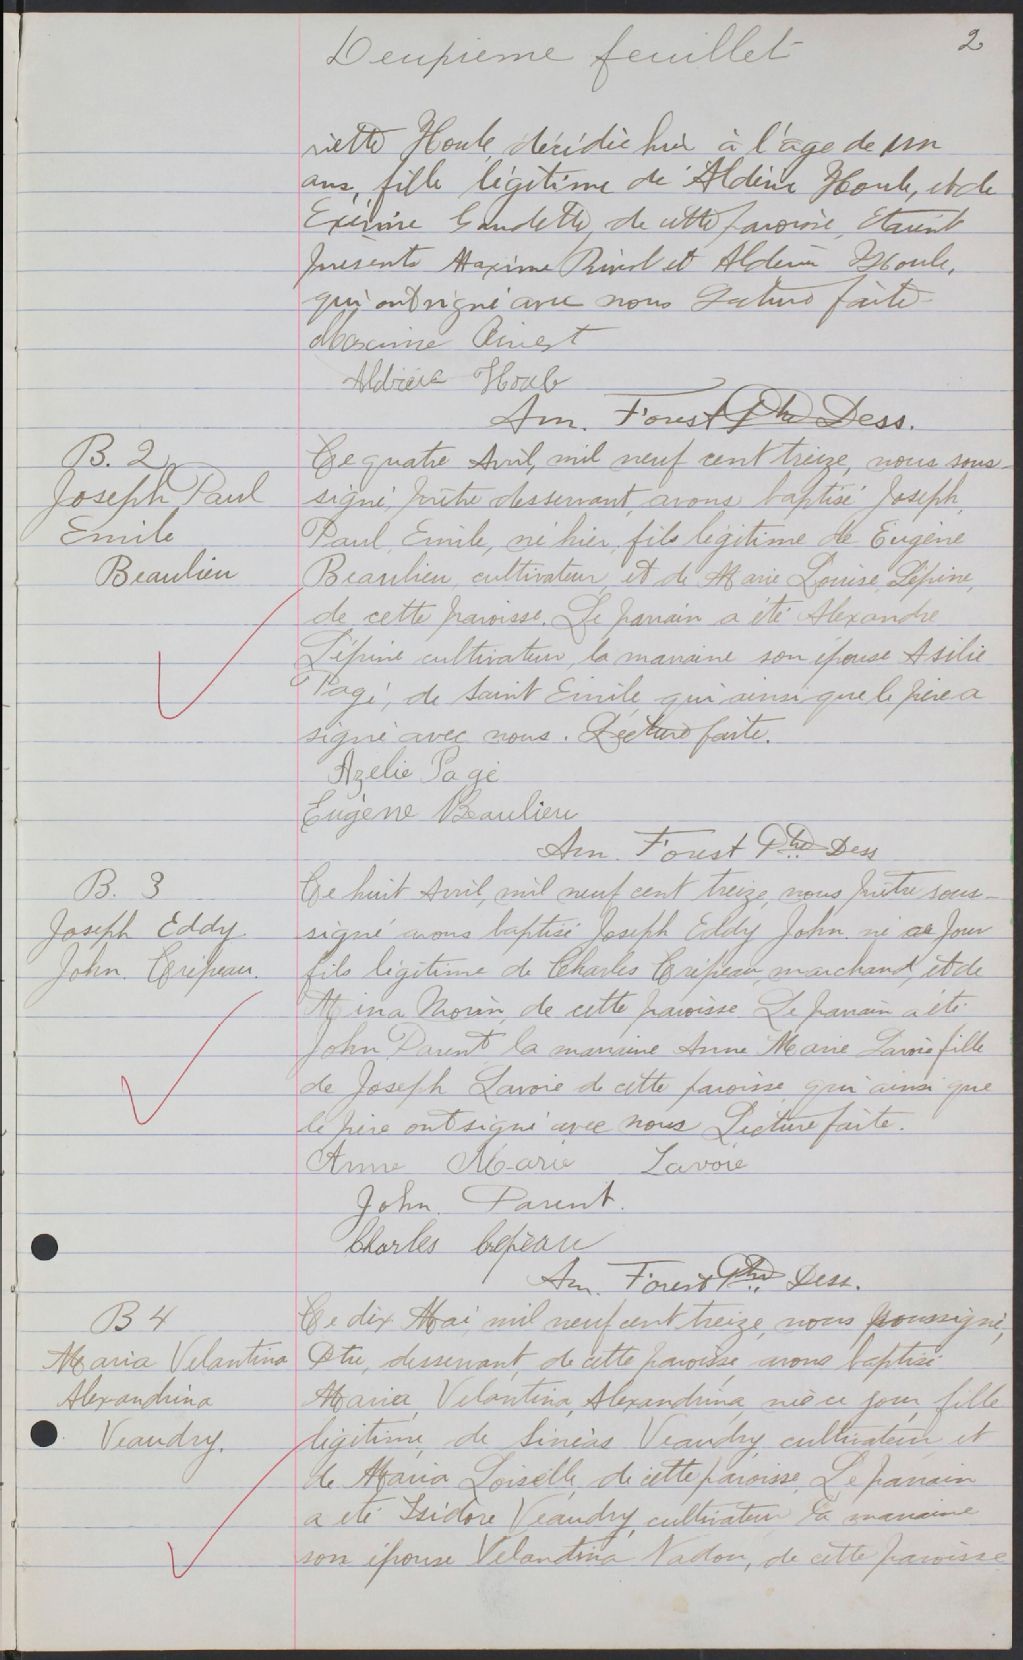 Deuxième feuillet
2
riette Houle décédée hier à l'âge de un
ans, fille légitime de Aldéric Houle, et de
Exérine Gaudette, de cette paroisse, Etaient
présents Maxime Rivest et Aldéric Houle,
qui ont signé avec nous Lecture faite
Maxime Rivest
Aldéric Houle
Am. Forest Ptre Dess.
B. 2
Joseph Paul
Emile
Beaulieu
Ce quatre Avril, mil neuf cent treize, nous sous-
signé, prêtre desservant, avons baptisé Joseph,
Paul, Emile, né hier, fils légitime de Eugène
Beaulieu, cultivateur, et de Marie Louise Lépine,
de cette paroisse. Le parrain a été Alexandre
Lépine cultivateur, la marraine son épouse Asilie
Pagé, de Saint Emile qui ainsi que le père a
signé avec nous. Lecture faite.
Azelie Pagé
Eugène Beaulieu
Am. Forest Ptre Dess
B. 3
Joseph Eddy
John. Crépeau.
Ce huit Avril, mil neuf cent treize, nous prêtre sous-
signé avons baptisé Joseph Eddy John. né ce Jour
fils légitime de Charles Crépeau, marchand, et de
Mina Morin, de cette paroisse. Le parrain a été
John Parent la marraine Anne Marie Lavoie fille
de Joseph Lavoie de cette paroisse qui ainsi que
le père ont signé avec nous Lecture faite.
Anne Marie Lavoie
John. Parent.
Charles Crépeau
Am. Forest Ptre Dess.
B 4
Maria Velantina
Alexandrina
Veaudry.
Ce dix Mai, mil neuf cent treize, nous soussigné,
Ptre, desservant, de cette paroisse, avons baptisé
Maria, Velantina, Alexandrina, née ce jour, fille
légitime, de Sinéas Veaudry, cultivateur et
de Maria Loiselle, de cette paroisse, Le parrain
a été Isidore Veaudry, cultivateur la marraine
son épouse Velantina Nadon, de cette paroisse